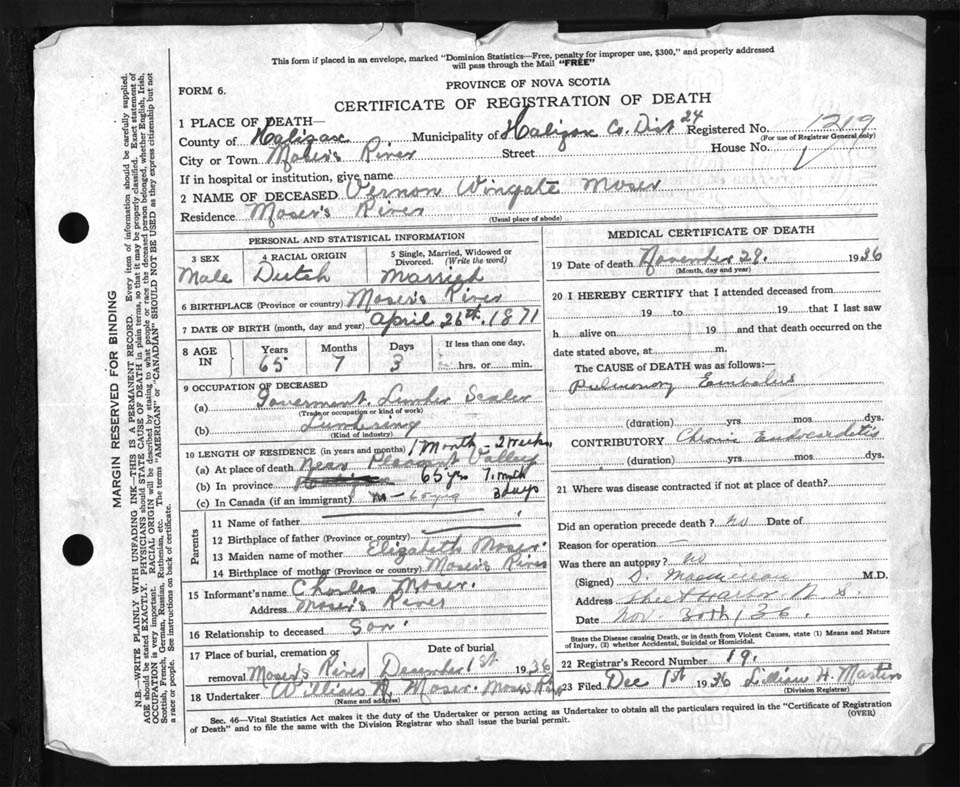 This form if placed in an envelope, marked "Dominion Statistics—Free, penalty for improper use, $300," and properly addressed
will pass through the Mail "FREE"
FORM 6.
PROVINCE OF NOVA SCOTIA
CERTIFICATE OF REGISTRATION OF DEATH
1 PLACE OF DEATH—
County of Halifax Municipality of Halifax Co. Dist 24 Registered No. 1219
(For use of Registrar General only)
City or Town Moser's River Street House No.
If in hospital or institution, give name
2 NAME OF DECEASED Vernon Wingate Moser
Residence Moser's River
(Usual place of abode)
PERSONAL AND STATISTICAL INFORMATION
3 SEX 4 RACIAL ORIGIN 5 Single, Married, Widowed or
Divorced. (Write the word)
Male Dutch Married
6 BIRTHPLACE (Province or country) Moser's River
7 DATE OF BIRTH (month, day and year) April 26th. 1871
8 AGE IN Years Months Days If less than one day,
65 7 3 hrs. or min.
9 OCCUPATION OF DECEASED
(a) Goverment Lumber Scaler
(Trade or occupation or kind of work)
(b) Lumbering
(Kind of industry)
10 LENGTH OF RESIDENCE (in years and months) 1 Month - 2 weeks
(a) At place of death Near Pleasant Valley
(b) In province 65 yrs 7 mnth
(c) In Canada (if an immigrant) 65 yrs 3 days
Parents
11 Name of father
12 Birthplace of father (Province or country)
13 Maiden name of mother Elizabeth Moser.
14 Birthplace of mother (Province or country) Moser's River
15 Informant's name Charles Moser.
Address Moser's River
16 Relationship to deceased Son.
17 Place of burial, cremation or Date of burial
removal Moser's River December 1st 1936
18 Undertaker William R. Moser. Moser's River
(Name and address)
MEDICAL CERTIFICATE OF DEATH
19 Date of death November 29. 1936
(Month, day and year)
20 I HEREBY CERTIFY that I attended deceased from
19 to 19 that I last saw
h alive on 19 and that death occurred on the
date stated above, at m.
The CAUSE of DEATH was as follows:—
Pulmonary Embolus
(duration) yrs mos dys.
CONTRIBUTORY Chronic Endocarditis
(duration) yrs mos dys.
21 Where was disease contracted if not at place of death?
Did an operation precede death? no Date of
Reason for operation —
Was there an autopsy? no
(Signed) D. M.D.
Address Sheet Harbor N. S.
Date Nov. 30th / 36.
State the Disease causing Death, or in death from Violent Causes, state (1) Means and Nature
of Injury, (2) whether Accidental, Suicidal or Homicidal.
22 Registrar's Record Number 19.
23 Filed Dec 1st 1936 Lillian H. Martin
(Division Registrar)
Sec. 46—Vital Statistics Act makes it the duty of the Undertaker or person acting as Undertaker to obtain all the particulars required in the "Certificate of Registration
of Death" and to file the same with the Division Registrar who shall issue the burial permit. (OVER)
MARGIN RESERVED FOR BINDING
N.B.—WRITE PLAINLY WITH UNFADING INK—THIS IS A PERMANENT RECORD. Every item of information should be carefully supplied.
AGE should be stated EXACTLY. PHYSICIANS should STATE CAUSE OF DEATH in plain terms, so that it may be properly classified. Exact statement of
OCCUPATION is very important. RACIAL ORIGIN will be described by stating to what people or race the deceased person belonged, whether English, Irish,
Scottish, French, German, Russian, Ruthenian, etc. The terms "AMERICAN" or "CANADIAN" SHOULD NOT BE USED as they express citizenship but not
a race or people. See instructions on back of certificate.